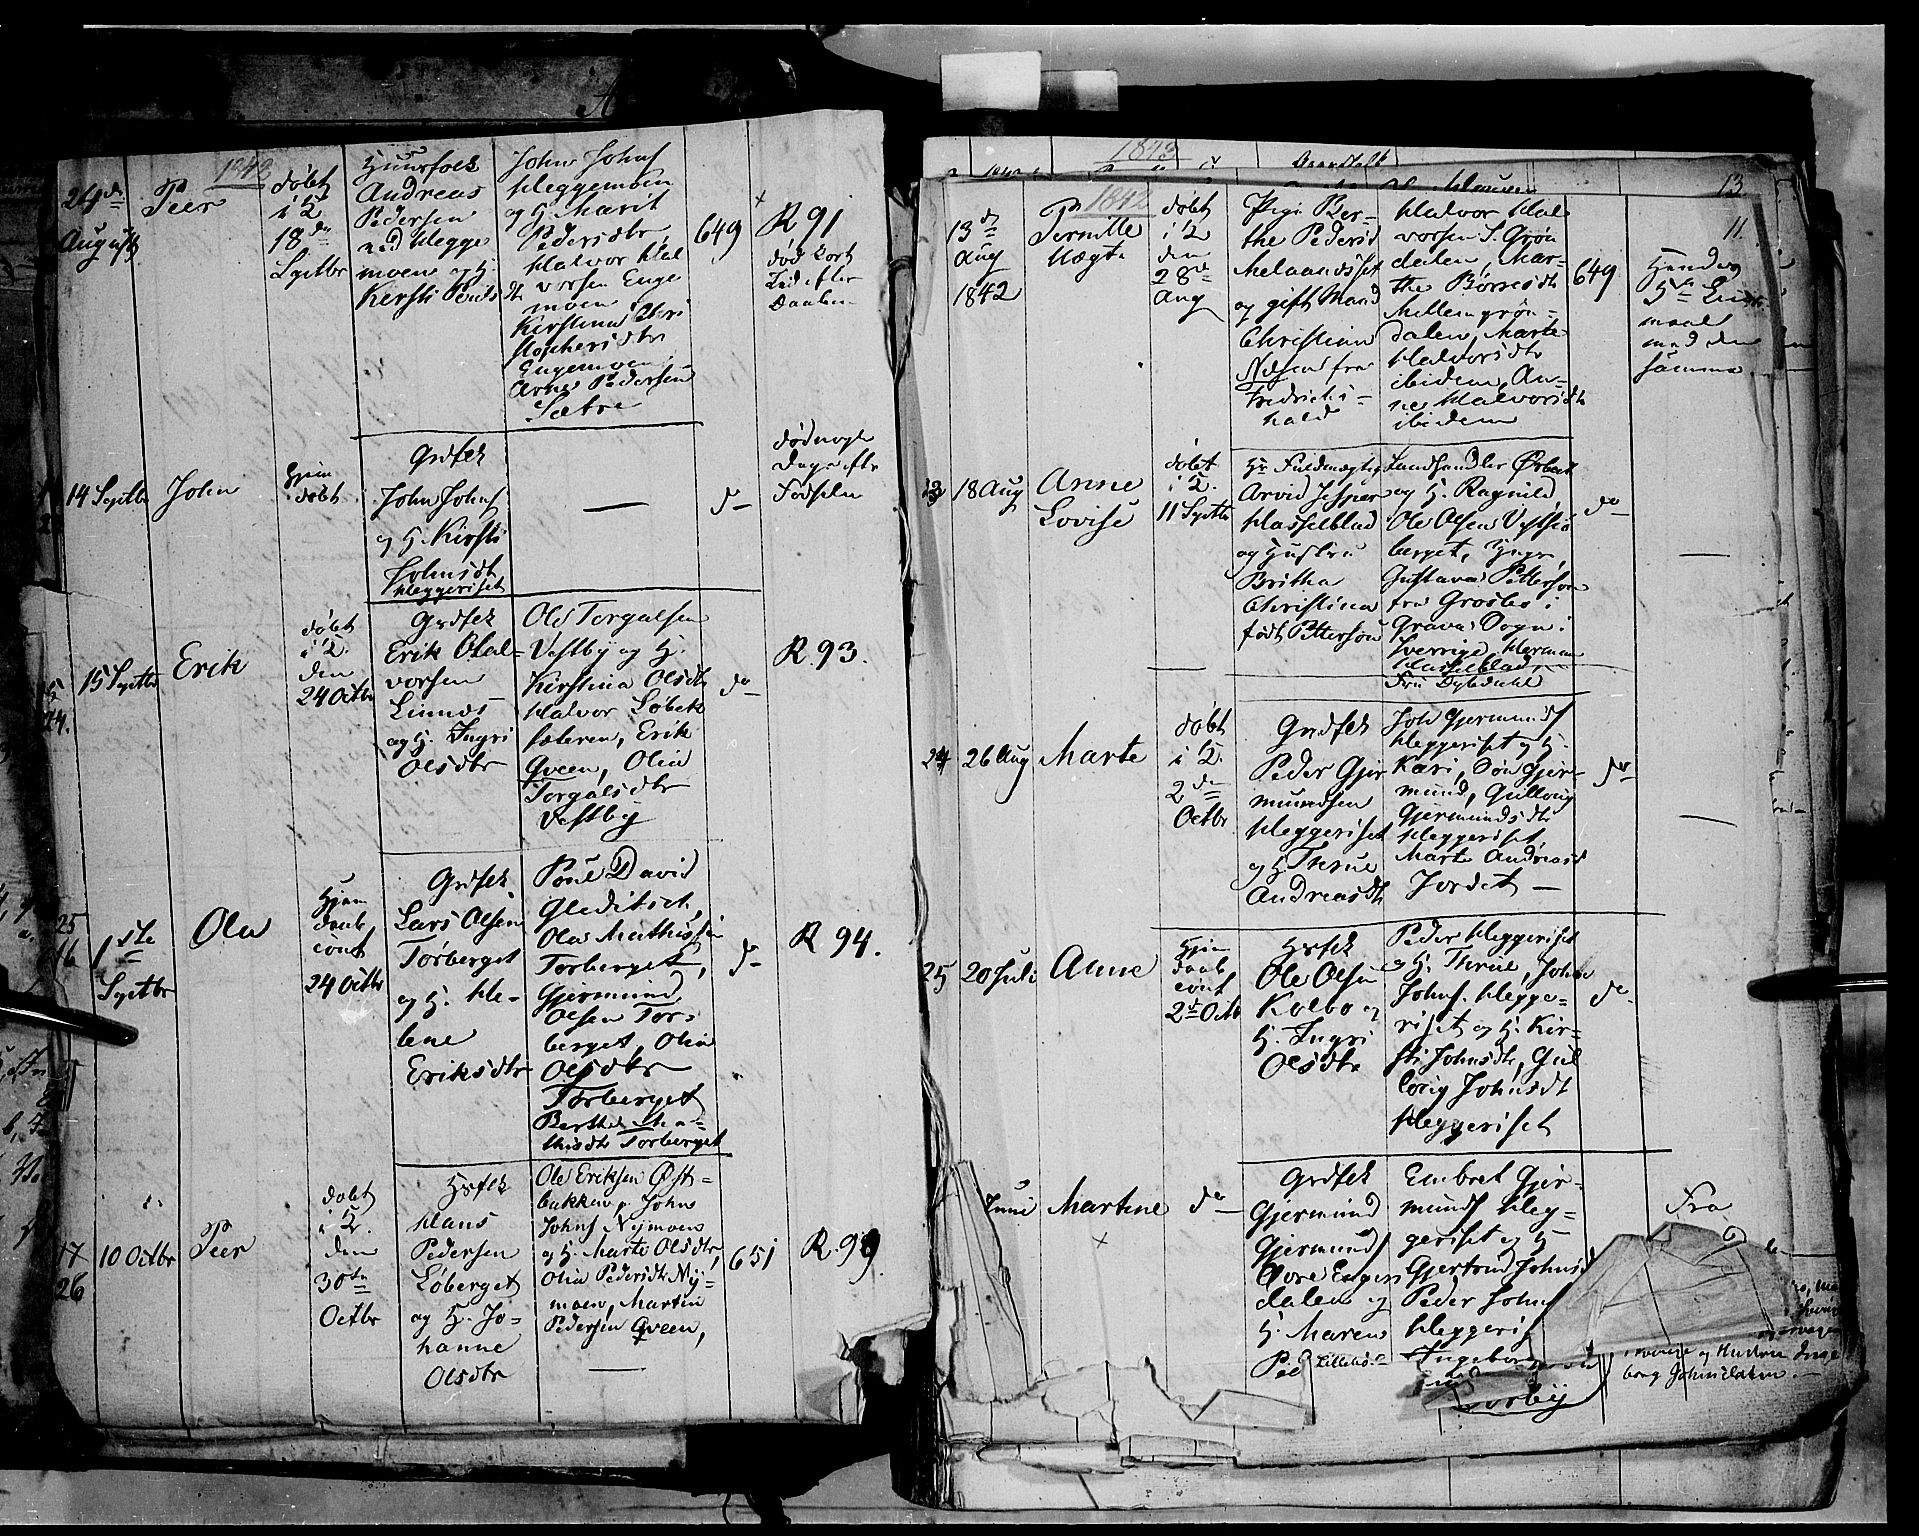 1842
24de
August
Peer
døbt
i K.
18de
Septbr
Huusfolk
Andreas
Pedersen
ned Hegge
moen og H.
Kersti Pedsdtr
John Johns
Heggemoen
og H. Marit
Pedersdtr
Halvor Hal
vorsen Enge
moen
Kirstina Chri
stophersdtr
Engemoen
Arne Pedersen
Sætre
649
R 91
død kort
Tid efter
Daaben
14 Septbr
John
Hjem
døbt
Grdfolk
John Johns
og H. Kirsti
Johnsdt
Heggeriset
—
do
død nogle
Dage eftr
Fødselen
15 Septbr
Erik
døbt
i K.
den
24 Octbr
Grdfolk
Erik Olal-
vorsen
Linnes
og H. Ingri
Olsdtr
Ole Torgalsen
Vestby og H.
Kirstina Olsdtr
Halvor Løbek
sæteren, Erik
Qveen, Olia
Torgalsdtr
Vestby
do
R. 93.
25
16
1ste
Septbr
Ola
Hjem
daab
conf
24 Octbr
Grdfolk
Lars Olsen
Tørberget
og H. He-
lene
Eriksdtr
Poul David
Gleditsch,
Ola Mathissen
Tørberget,
Gjermund
Olsen Tør-
berget, Olia
Olsdtr
Tørberget
Berthe Ma-
thisdtr Tørberget
do
R 94.
17
26
10 Octbr
Peer
døbt
i K.
den
30te
Octbr
Hsfolk
Hans
Pedersen
Løberget
og H. Jo-
hanne
Olsdtr
Ole Eriksen Øst-
bakken, John
Johns Nymoen
og H. Marte Olsdtr,
Olia Pedersdtr Ny-
moen, Martin
Pedersen Qveen,
—
651
R. 99.
1843
13
11.
1842
13de
Aug
1842
Pernille
Uægte
døbt
i K
den
28de
Aug
Pige Ber-
the Pedersd
Melaandsset
og gift Mand
Christian
Næsen fra
Fredriks-
hald
Halvor Hal
vorsen S. Grøn
dalen, Mar-
the Børresdtr
Mellemgrøn-
dalen, Marte
Halvorsdtr
ibidem, An-
ne Halvorsdtr
ibidem
649
Hendes
5te Leier
maal
med den
samme
18 Aug
Anne
Lovise
døbt
i K.
11 Septbr
Hr. Fuldmægtig
Arvid Jesper
Hasselblad
og Hustru
Britha
Christina
født Petterson
Landhandler Ørbeck
og H. Ragnild,
Ole Olsen Vestsiø
berget,
Gustava Petterson
fra Grosbøl i
Grava Sogn i
Sverrige, Herman
Hasselblad,
Fru Dybdahl
do
—
24
26 Aug
Marte
døbt
i K.
2den
Octbr
Grdfolk
Peder Gjer
mundsen
Heggeriset
og H. Thrue
Andreasdtr
Joh Gjermunds
Heggeriset og H.
Kari, Søn Gjer-
mund, Gullaug
Gjermundsdtr
Heggeriset
Marte Andreasd
Jordet —
do
—
25
20 Juli
Anne
Hjem
daab
conf
2d Octb
Hsfolk
Ole Olsen
Kolbo og
H. Ingri
Olsdtr
Peder Heggeriset
og H. Thrue, John
Johns. Hegge-
riset og H. Kir-
sti Johnsdtr, Gul
lorig Johnsdt
Heggeriset
do
Juni
Martine
do
Grdfolk
Gjermund
Gjermunds
Øvre Enger
dalen og
H. Maren
Ped
Lillebo
Embret Gjer-
munds Heg-
geriset og H
Gjertrud Johnsd
Peder Johns
Heggeriset
Ingebor
Sørby
Fra
og Hustru Inge
borg Johnsdatter. —